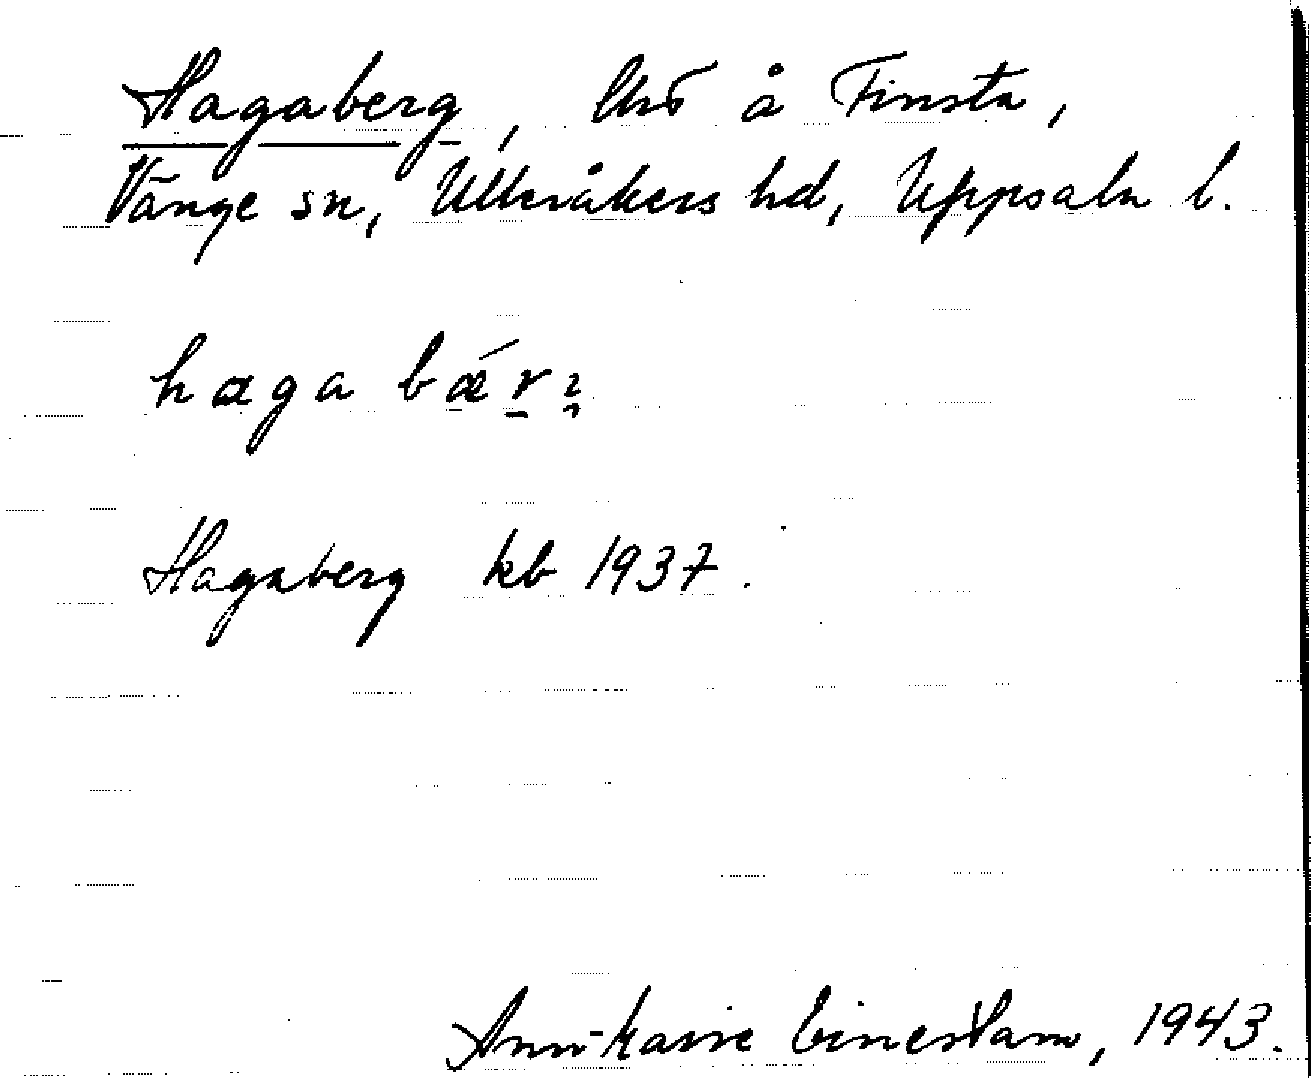 Hagaberg, lhs å Finsta,
Vänge sn, Ulleråkers hd, Uppsala l.
haga bǽr
Hagaberg kb 1937.
Ann-Karin 1943.